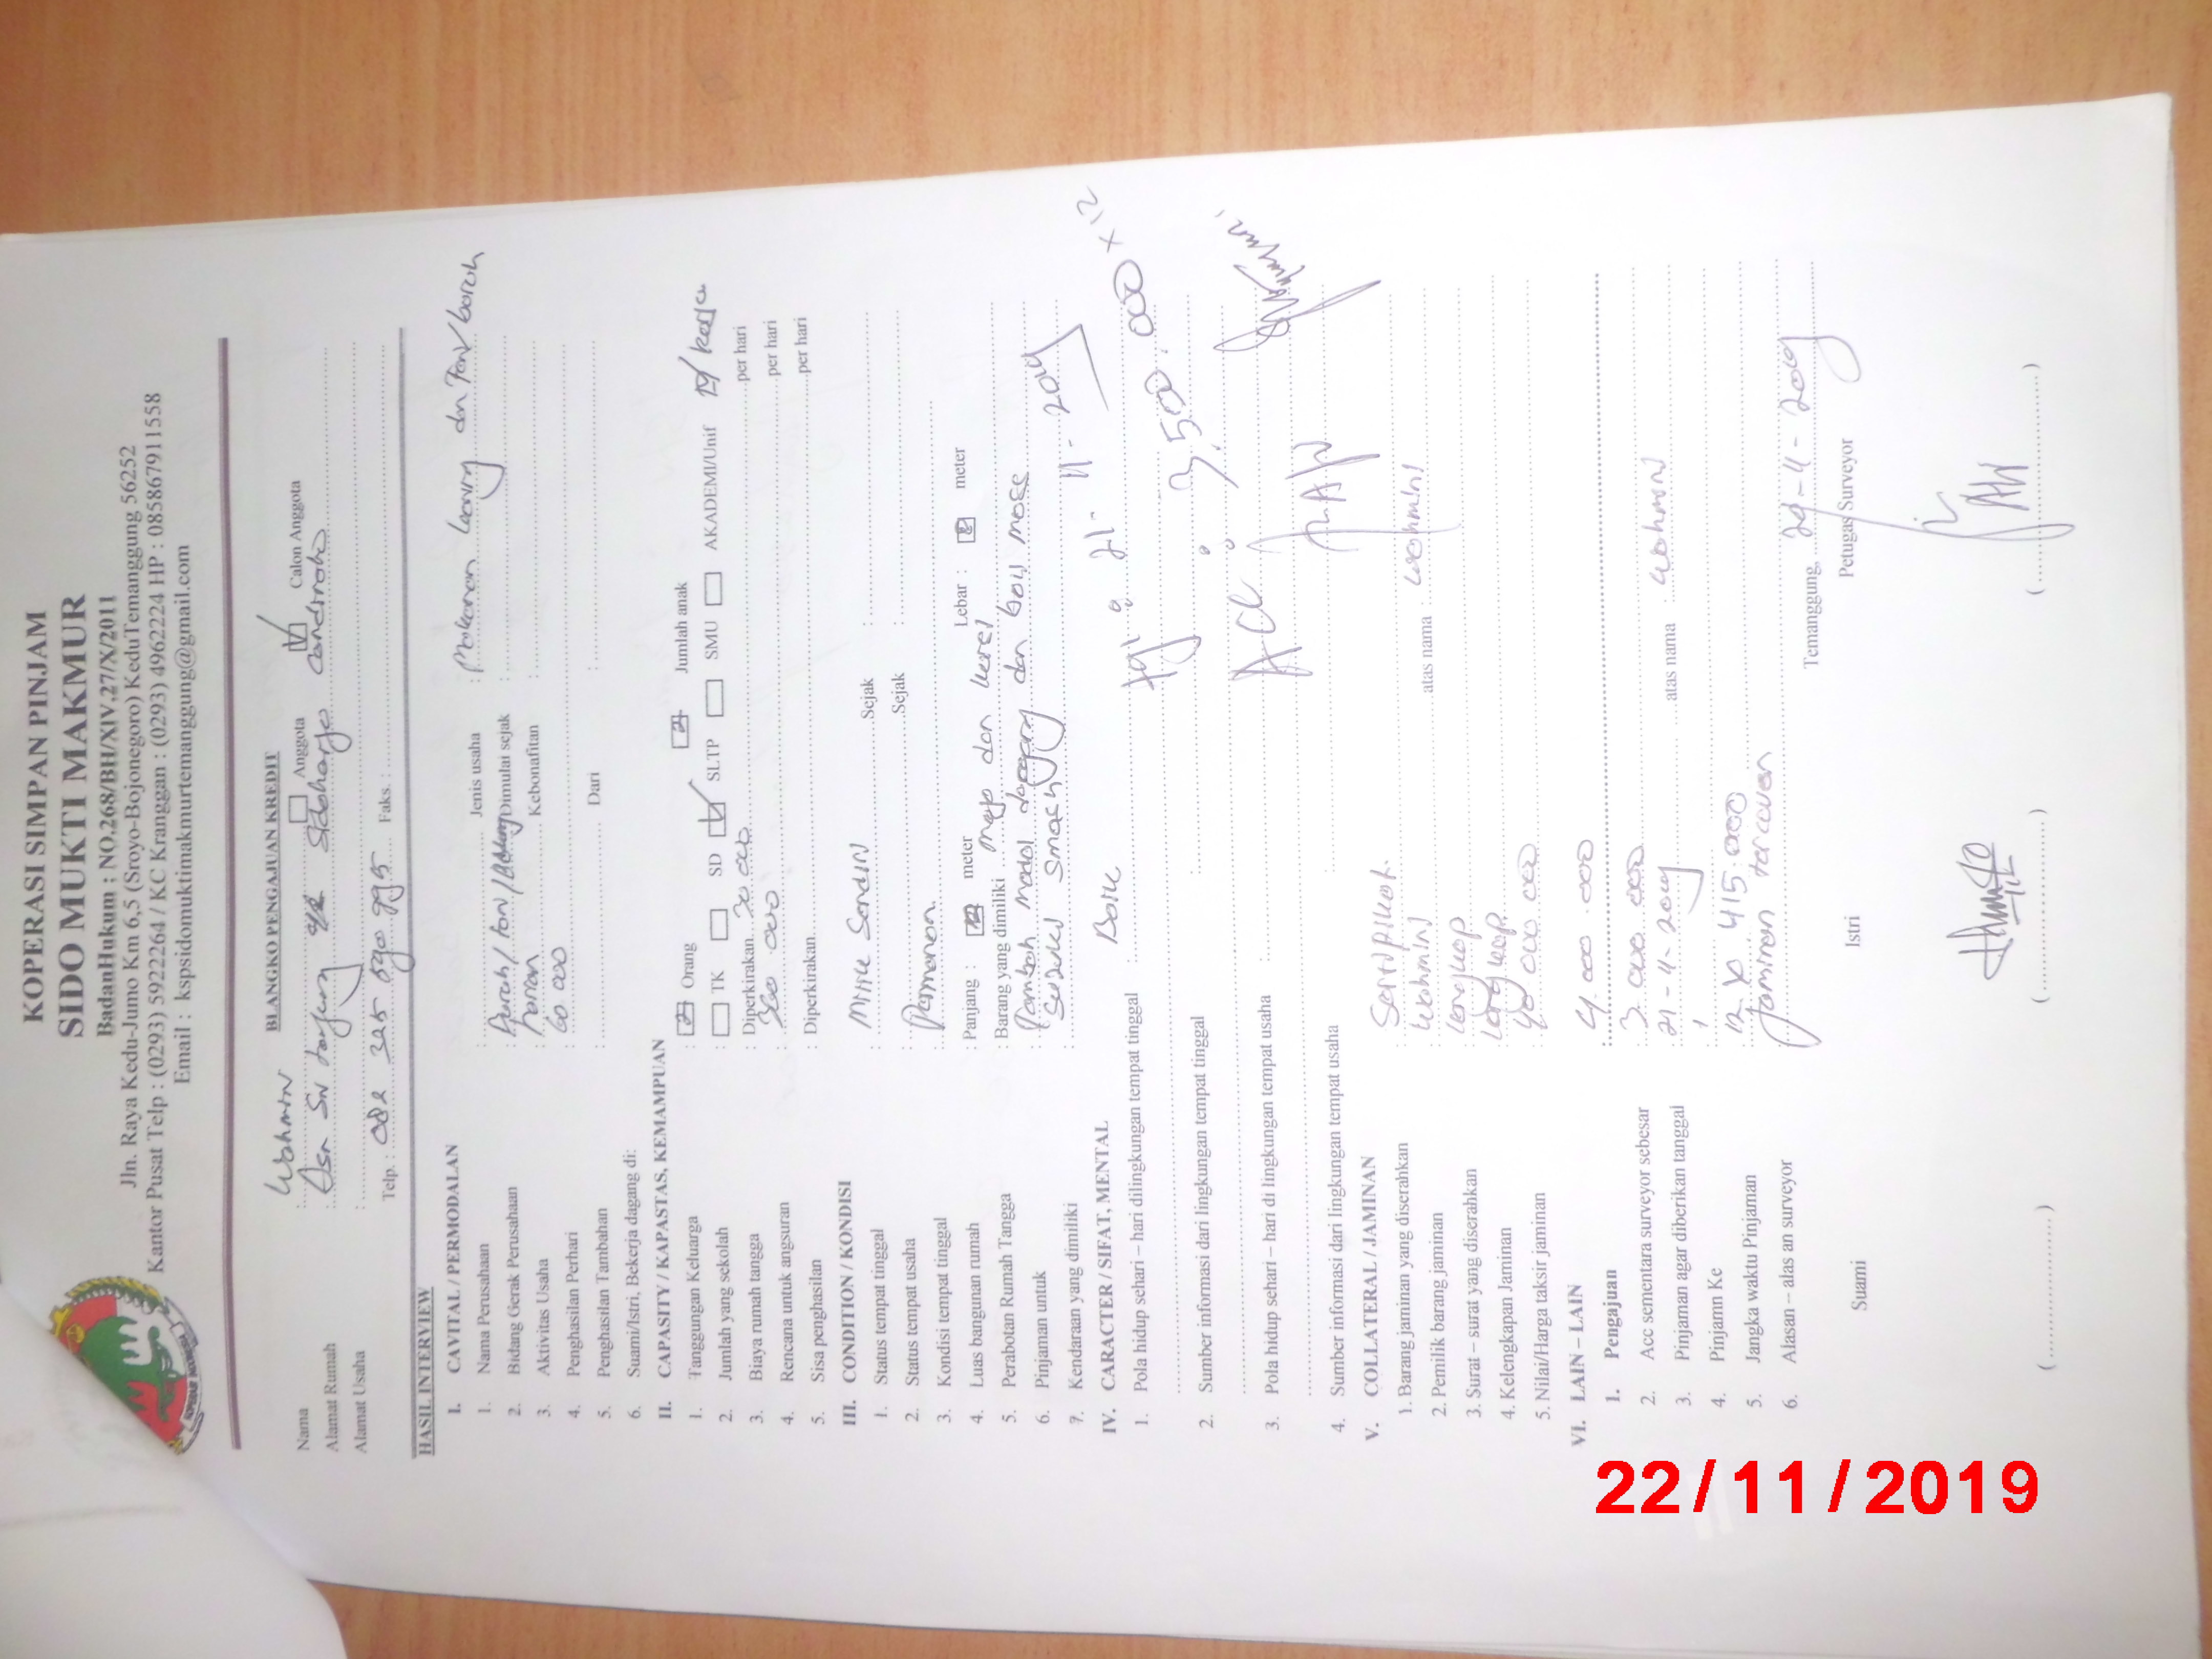 KOPERASI SIMPAN PINJAM
SIDO MUKTI MAKMUR
BadanHukum : NO.268/BH/XIV.27/X/2011
Jln. Raya Kedu-Jumo Km 6,5 (Sroyo-Bojonegoro) KeduTemanggung 56252
Kantor Pusat Telp : (0293) 5922264 / KC Kranggan : (0293) 4962224 HP : 085867911558
Email : kspsidomuktimakmurtemanggung@gmail.com
BLANGKO PENGAJUAN KREDIT
Anggota Calon Anggota
Nama : Wahmin
Alamat Rumah : Sidoharjo Candiroto
Alamat Usaha :
Telp. : 082 325 690 995 Faks. :
HASIL INTERVIEW
I. CAVITAL / PERMODALAN
1. Nama Perusahaan Jenis usaha : Makanan dan Tani/buruh
2. Bidang Gerak Perusahaan : Buruh/tani/ Dimulai sejak :
3. Aktivitas Usaha : harian Kebonafitan :
4. Penghasilan Perhari : 60 000
5. Penghasilan Tambahan : Dari :
6. Suami/Istri, Bekerja dagang di:
II. CAPASITY / KAPASTAS, KEMAMPUAN
1. Tanggungan Keluarga : 2 Orang 2 Jumlah anak
2. Jumlah yang sekolah : TK SD SLTP SMU AKADEMI/Unif kerja
3. Biaya rumah tangga : Diperkirakan 30 000 per hari
4. Rencana untuk angsuran : 360 000 per hari
5. Sisa penghasilan : Diperkirakan per hari
III. CONDITION / KONDISI
1. Status tempat tinggal : Milik Sendiri Sejak :
2. Status tempat usaha : Sejak :
3. Kondisi tempat tinggal : Permanen
4. Luas bangunan rumah : Panjang : meter Lebar : 8 meter
5. Perabotan Rumah Tangga : Barang yang dimiliki meja dan kursi
6. Pinjaman untuk : Tambah modal dagang dan
7. Kendaraan yang dimiliki : Suzuki Smash
IV. CARACTER / SIFAT, MENTAL
1. Pola hidup sehari – hari dilingkungan tempat tinggal : Baik
2. Sumber informasi dari lingkungan tempat tinggal :
3. Pola hidup sehari – hari di lingkungan tempat usaha :
4. Sumber informasi dari lingkungan tempat usaha
tgl : 21 - 11 - 2019
ACC : 3.500.000 x 12
V. COLLATERAL / JAMINAN
1. Barang jaminan yang diserahkan : Sertipikat
2. Pemilik barang jaminan : Wahmin atas nama : Wahmin
3. Surat – surat yang diserahkan : lengkap
4. Kelengkapan Jaminan : lengkap
5. Nilai/Harga taksir jaminan : 40 000 000
VI. LAIN – LAIN
1. Pengajuan : 4.000.000
2. Acc sementara surveyor sebesar : 3.000.000
3. Pinjaman agar diberikan tanggal : 21-11-2019 atas nama : Wahmin
4. Pinjamn Ke : 1
5. Jangka waktu Pinjaman : 12 x 415.000
6. Alasan – alas an surveyor : Jaminan tercover
Temanggung,
Suami Istri Petugas Surveyor
(..............) (..............) (..............)
22/11/2019